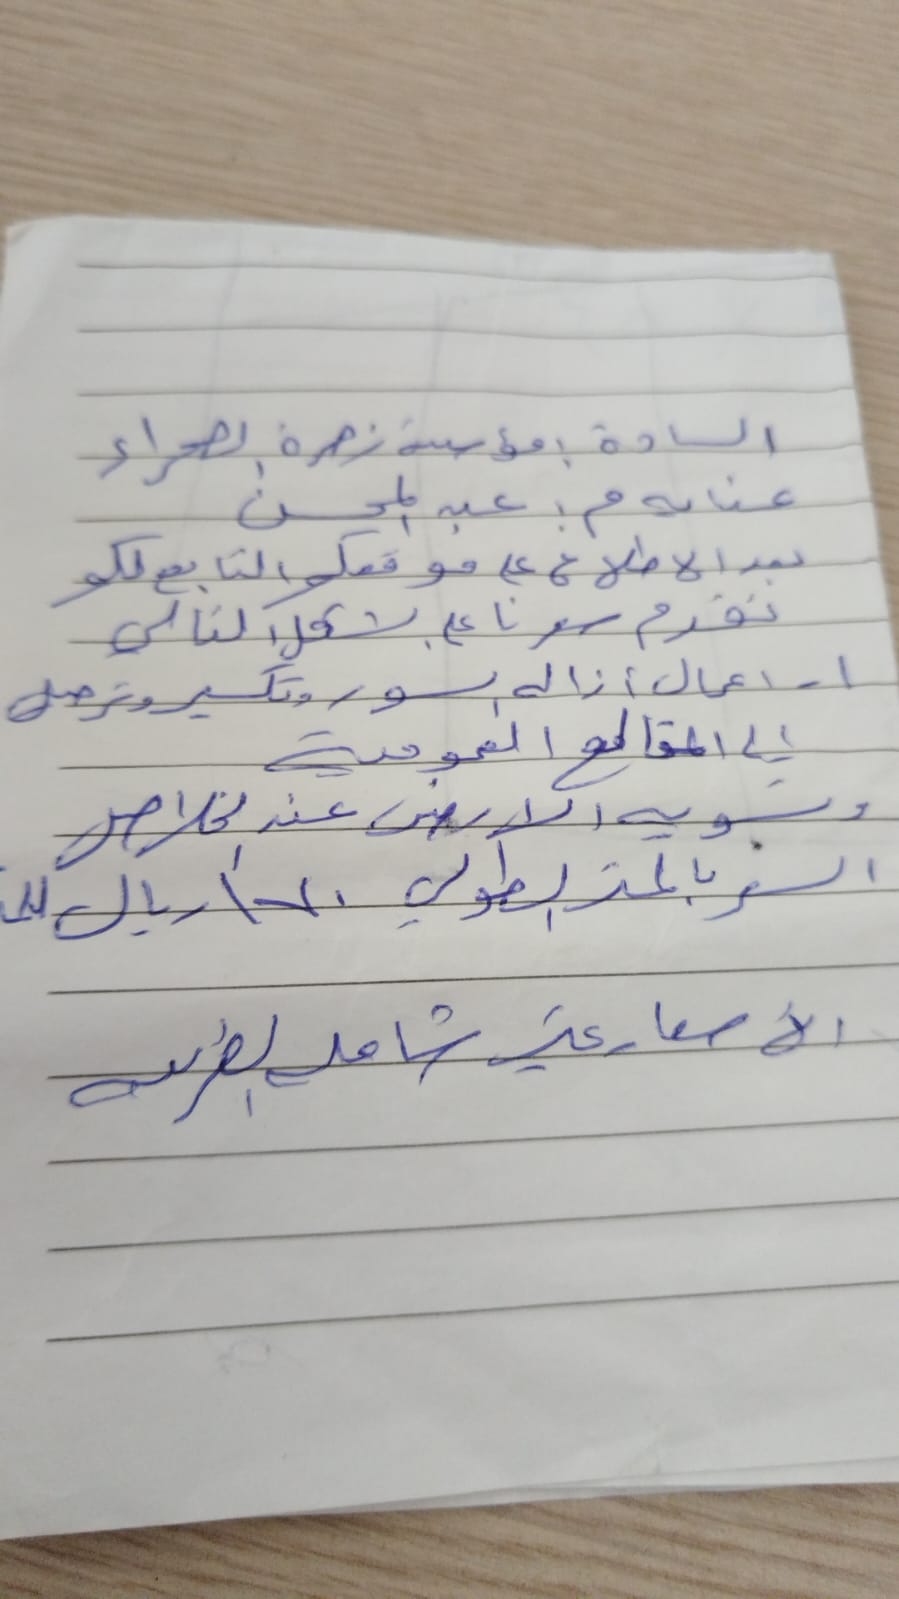 السادة : مؤسسة زهرة الصحراء
عنايه م : عبد المحسن
بعد الاطلاع على موقعكم التابع لكم
نتقدم بعرضنا على الشكل التالي
١- اعمال ازاله السور وتكسير وترحيل
الى المقالع العموميه
وتسويه الارض عند الخلاص
السعر بالمتر الطولي ريال
الاسعار غير شامله الضريبه